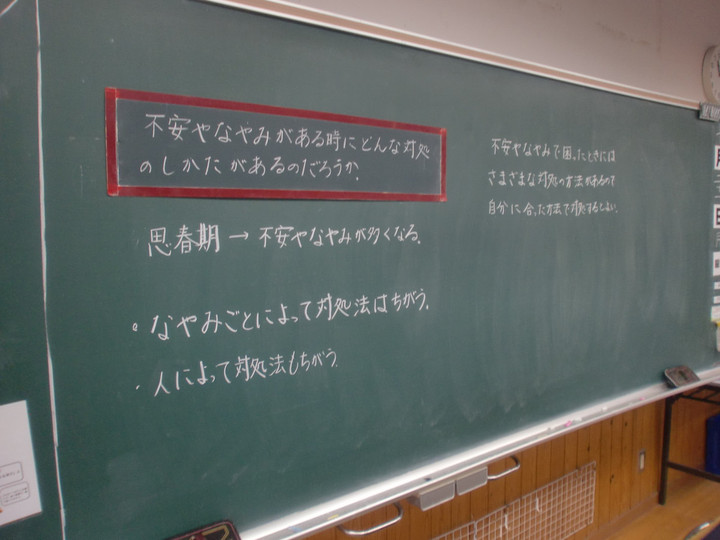 不安やなやみがある時にどんな対処
のしかたがあるのだろうか。
思春期→不安やなやみが多くなる。
・なやみごとによって対処法はちがう。
・人によって対処法もちがう。
不安やなやみで困ったときには
さまざまな対処の方法があるので
自分に合った方法で対処するとよい。